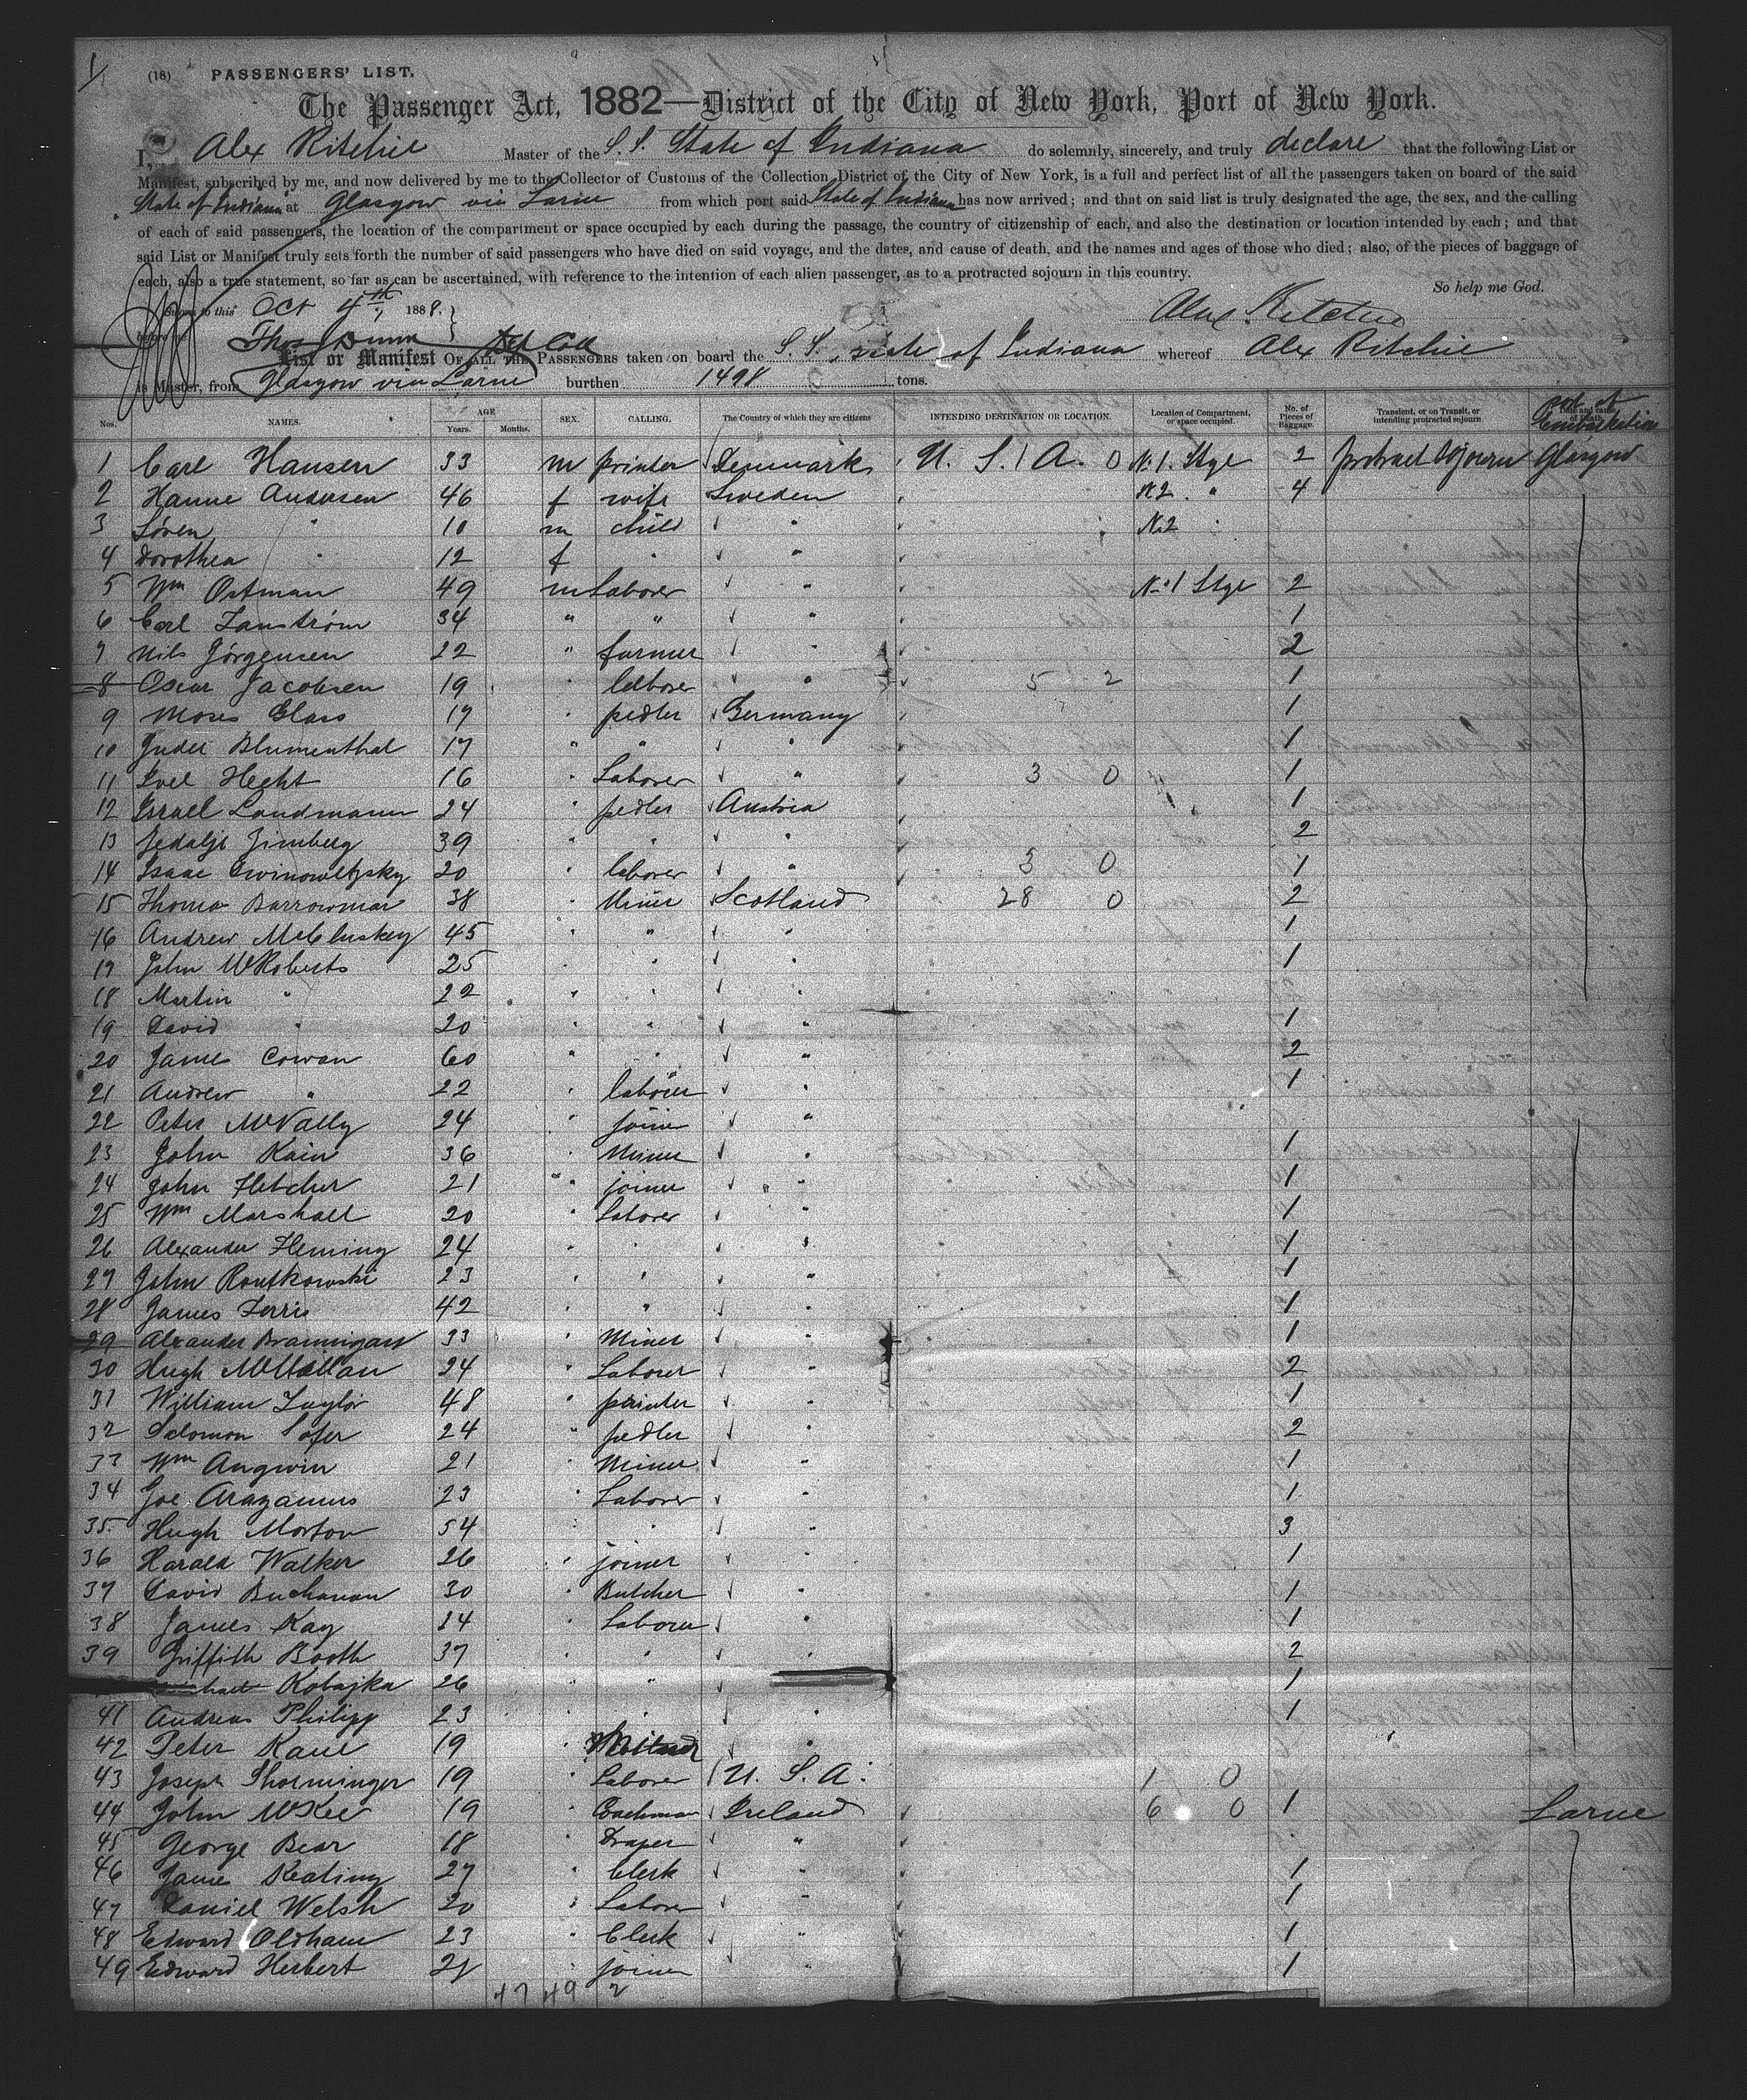 1
(18) PASSENGERS' LIST.
The Passenger Act, 1882—District of the City of New York, Port of New York.
I, Alex Ritchie Master of the S.S. State of Indiana do solemnly, sincerely, and truly declare that the following List or
Manifest, subscribed by me, and now delivered by me to the Collector of Customs of the Collection District of the City of New York, is a full and perfect list of all the passengers taken on board of the said
State of Indiana at Glasgow via Larne from which port said State of Indiana has now arrived; and that on said list is truly designated the age, the sex, and the calling
of each of said passengers, the location of the compartment or space occupied by each during the passage, the country of citizenship of each, and also the destination or location intended by each; and that
said List or Manifest truly sets forth the number of said passengers who have died on said voyage, and the dates, and cause of death, and the names and ages of those who died; also, of the pieces of baggage of
each, also a true statement, so far as can be ascertained, with reference to the intention of each alien passenger, as to a protracted sojourn in this country.
So help me God.
Sworn to this Oct 4th, 1888. Alex. Ritchie
before me Thos Dunn
List or Manifest OF ALL THE PASSENGERS taken on board the S.S. State of Indiana whereof Alex Ritchie
is Master, from Glasgow via Larne burthen 1498 tons.
Nos. NAMES. AGE Years. Months. SEX. CALLING. The Country of which they are citizens INTENDING DESTINATION OR LOCATION. Location of Compartment, or space occupied. No. of Pieces of Baggage. Transient, or on Transit, or intending protracted sojourn. Date and cause of Death. Port of Embarkation
1 Carl Hansen 33 m printer Denmark U.S.A. 0 No 1. Stge 2 protract Sojourn Glasgow
2 Hanne Andersen 46 f wife Sweden No 2 " 4
3 Sören " 10 m child " No 2
4 Dorothea " 12 f " "
5 Wm Ostman 49 m Laborer " No 1 Stge 2
6 Carl Lanström 34 " " " 1
7 Nils Jörgensen 22 " farmer " 2
8 Oscar Jacobsen 19 " laborer " 5 2 1
9 Moses Glass 17 " pedler Germany 1
10 Judel Blumenthal 17 " " " 1
11 Hecht 16 " Laborer " 3 0 1
12 Israel Landmann 24 " pedler Austria 1
13 39 " " " 2
14 Isaac 20 " laborer " 3 0 1
15 Thomas Barrowman 38 " Miner Scotland 28 0 2
16 Andrew McCluskey 45 " " " 1
17 John McRoberts 25 " " " 1
18 Martin " 22 " " "
19 David " 20 " " " 1
20 James Cowan 60 " " " 2
21 Andrew " 22 " laborer " 1
22 Peter McVally 24 " joiner "
23 John Kain 36 " Miner " 1
24 John Fletcher 21 " joiner " 1
25 Wm Marshall 20 " Laborer " 1
26 Alexander Fleming 24 " " " 1
27 John Routkowski 23 " " " 1
28 James Ferrie 42 " " " 1
29 Alexander Brannigan 33 " Miner " 1
30 Hugh McMillan 24 " Laborer " 2
31 William Taylor 48 " painter " 1
32 Solomon Sofer 24 " pedler " 2
33 Wm Angwin 21 " Miner " 1
34 Joe 23 " Laborer " 1
35 Hugh Morton 54 " " " 3
36 Harald Walker 26 " joiner " 1
37 David Buchanan 30 " Butcher " 1
38 James Kay 14 " Laborer " 1
39 Griffith Booth 37 " " " 2
Kobajka 26 " " " 1
41 Andreas Philipp 23 " " " 1
42 Peter Kane 19 " "
43 Joseph Thorminger 19 " Laborer U.S.A. 1 0
44 John McKee 19 " Coachman Ireland 6 0 1 Larne
45 George Bear 18 " Draper "
46 Jame Keating 27 " Clerk " 1
47 Daniel Welsh 20 " Laborer " 1
48 Edward Oldham 23 " Clerk " 1
49 Edward Herbert 21 " joiner " 1
47 49 2